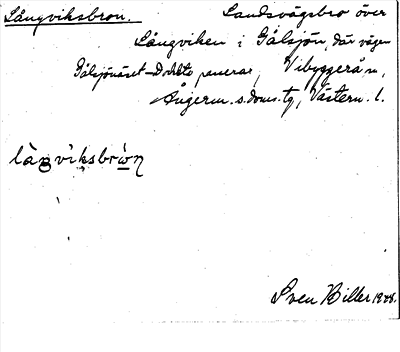 Långviksbron. Landsvägsbro över
Långviken i Gålsjön, där vägen
Gålsjönäset – Docksta passerar, Vibyggerå sn,
Ångerm. s. doms. tg, Västern. l.
làŋvìksbròn
Sven Biller 1928.